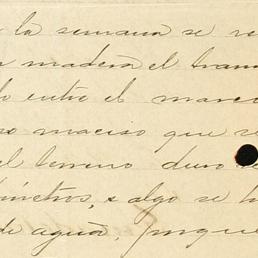 la semana se re
madera el tram
lo entre el marc
ro maciso que se
el terreno duro
metros, algo se h
de agua,